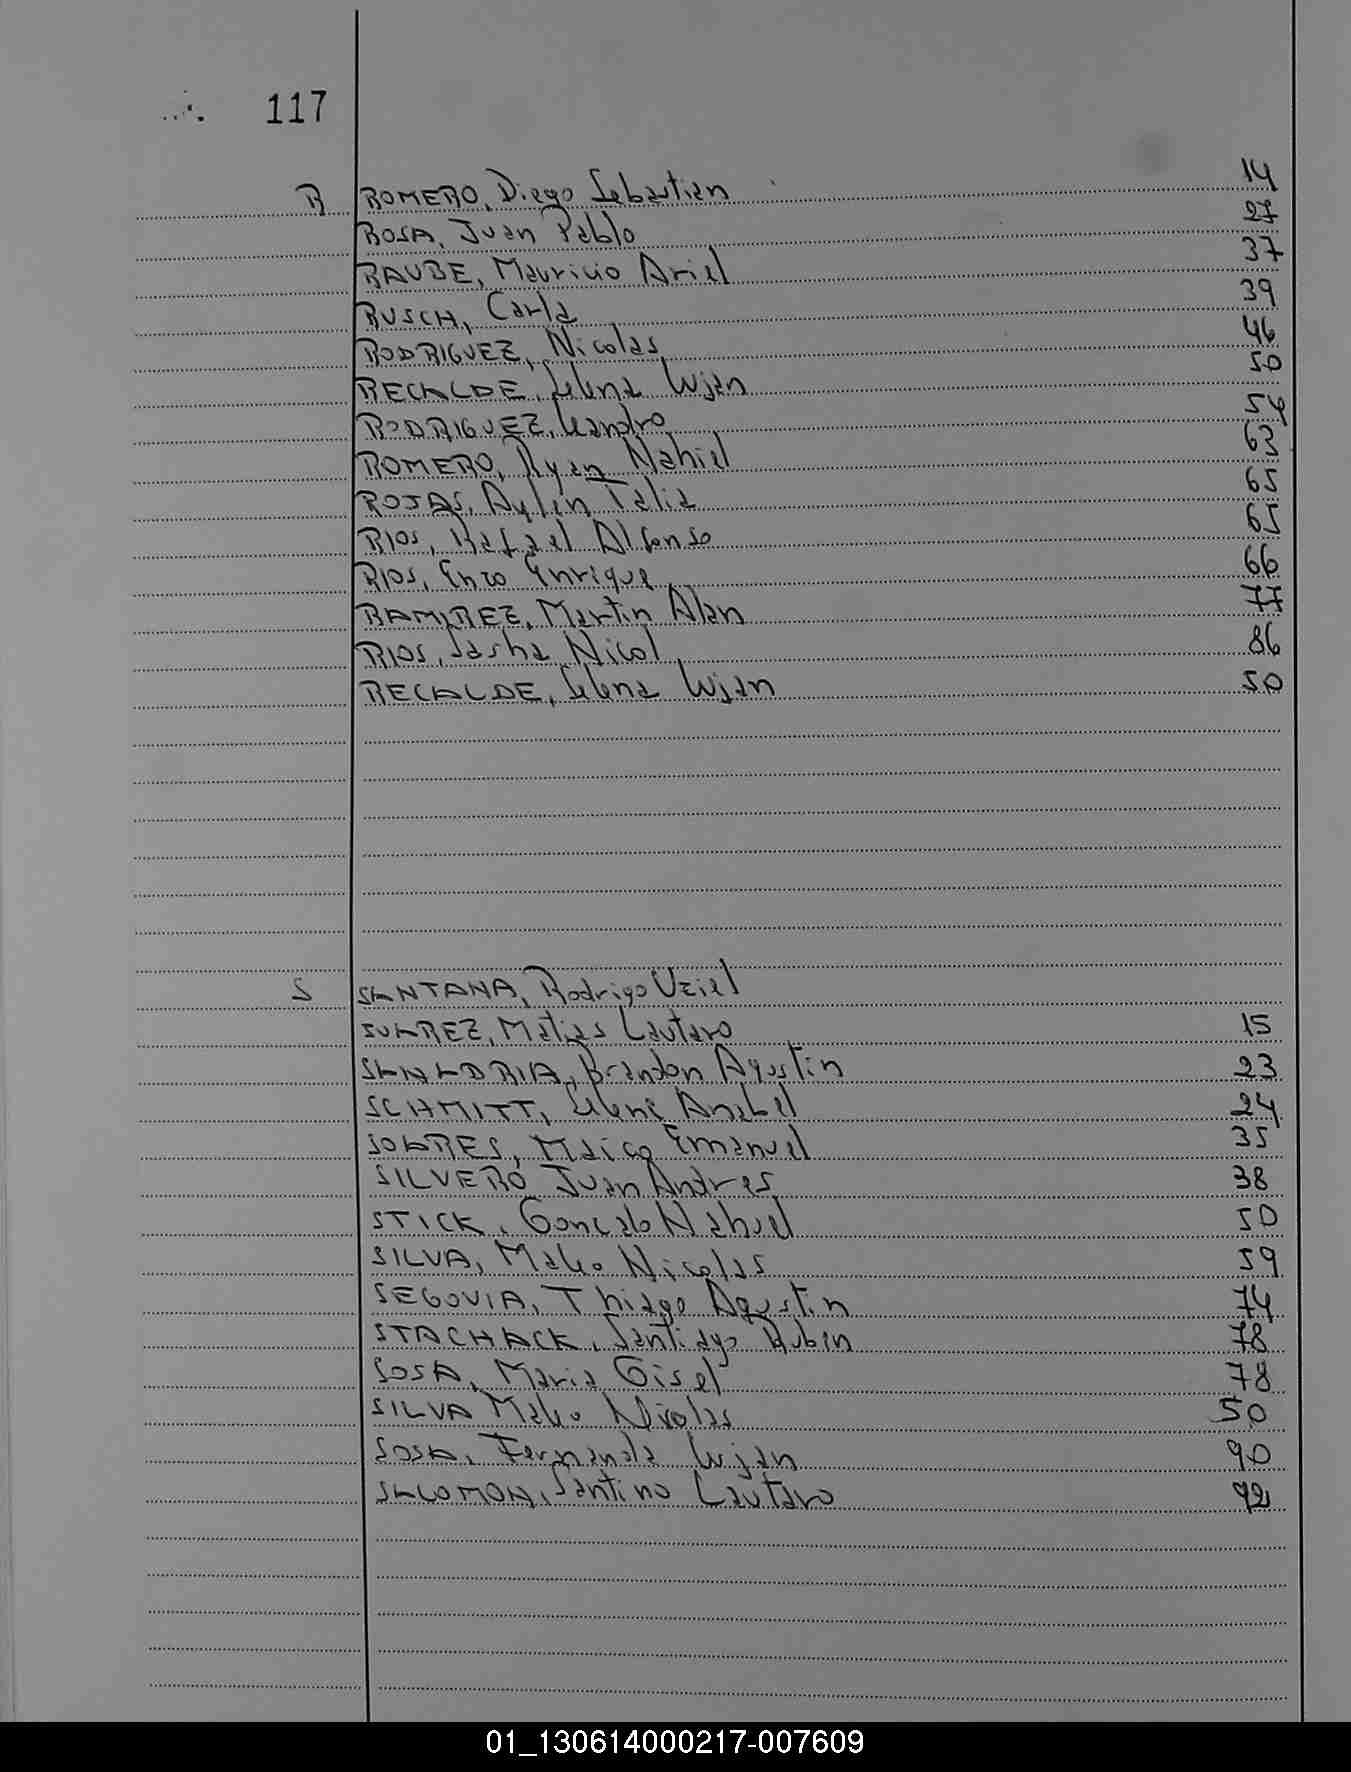 117
R ROMERO, Diego Sebastian 14
ROSA, Juan Pablo 27
RAUBE, Mauricio Ariel 37
RUSCH, Carla 39
RODRIGUEZ, Nicolas 46
RECALDE, Selena Lujan 50
RODRIGUEZ, Leandro 54
ROMERO, Ryan Nahiel 63
ROJAS, Aylin Talia 65
RIOS, Rafael Alfonso 65
RIOS, Enzo Enrique 66
RAMIREZ, Martin Alan 77
RIOS, Sasha Nicol 86
RECALDE, Selena Lujan 50
S SANTANA, Rodrigo Uziel
SUAREZ, Matias Lautaro 15
SANADRIA, Brandon Agustin 23
SCHMITT, Selene Anabel 24
SOARES, Maico Emanuel 35
SILVERO Juan Andres 38
STICK, Gonzalo Nahuel 50
SILVA, Nicolas 59
SEGOVIA, Thiago Agustin 74
STACHACK, Santiago Rubin 78
SOSA, Maria Gisel 78
SILVA Nicolas 50
SOSA, Fernanda Lujan 90
SALOMON, Santino Lautaro 92
01_130614000217-007609